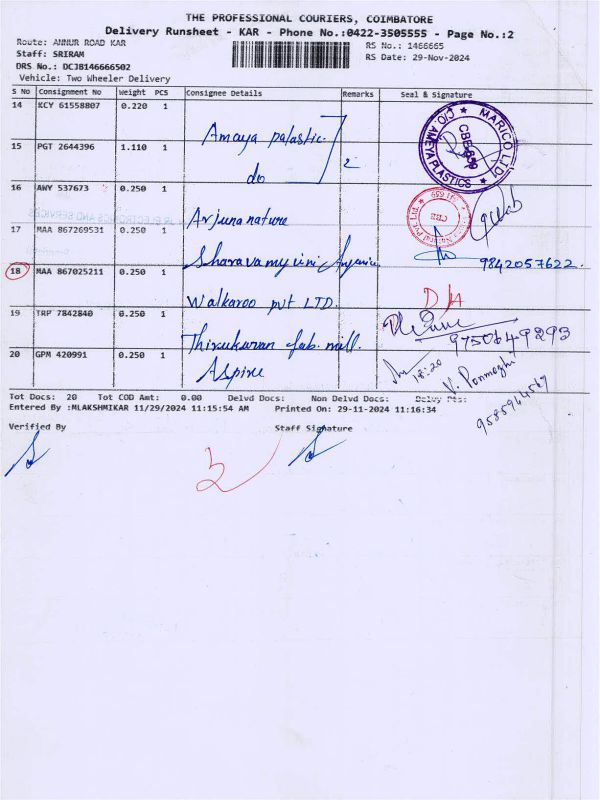 THE PROFESSIONAL COURIERS, COIMBATORE
Delivery Runsheet - KAR - Phone No.:0422-3505555 - Page No.:2
Route: ANNUR ROAD KAR
RS No.: 1466665
Staff: SRIRAM
RS Date: 29-Nov-2024
DRS No.: DCJB146666502
Vehicle: Two Wheeler Delivery
S No Consignment No Weight PCS Consignee Details Remarks Seal & Signature
14 KCY 61558807 0.220 1 Amaya palastic.
MARICO LTD C/O. AMEYA PLASTICS
CBE-659
15 PGT 2644396 1.110 1 do 2
16 AWY 537673 0.250 1 Arjuna nature
17 MAA 867269531 0.250 1
9842057622.
18 MAA 867025211 0.250 1 Walkaroo pvt LTD. D/A
19 TRP 7842840 0.250 1 Thirukuran fab. mill.
9750649293
20 GPM 420991 0.250 1 Aspire
18:20
V. Ponmoghi
9585944569
Tot Docs: 20 Tot COD Amt: 0.00 Delvd Docs: Non Delvd Docs: Delvy Pts:
Entered By :MLAKSHMIKAR 11/29/2024 11:15:54 AM Printed On: 29-11-2024 11:16:34
Verified By Staff Signature